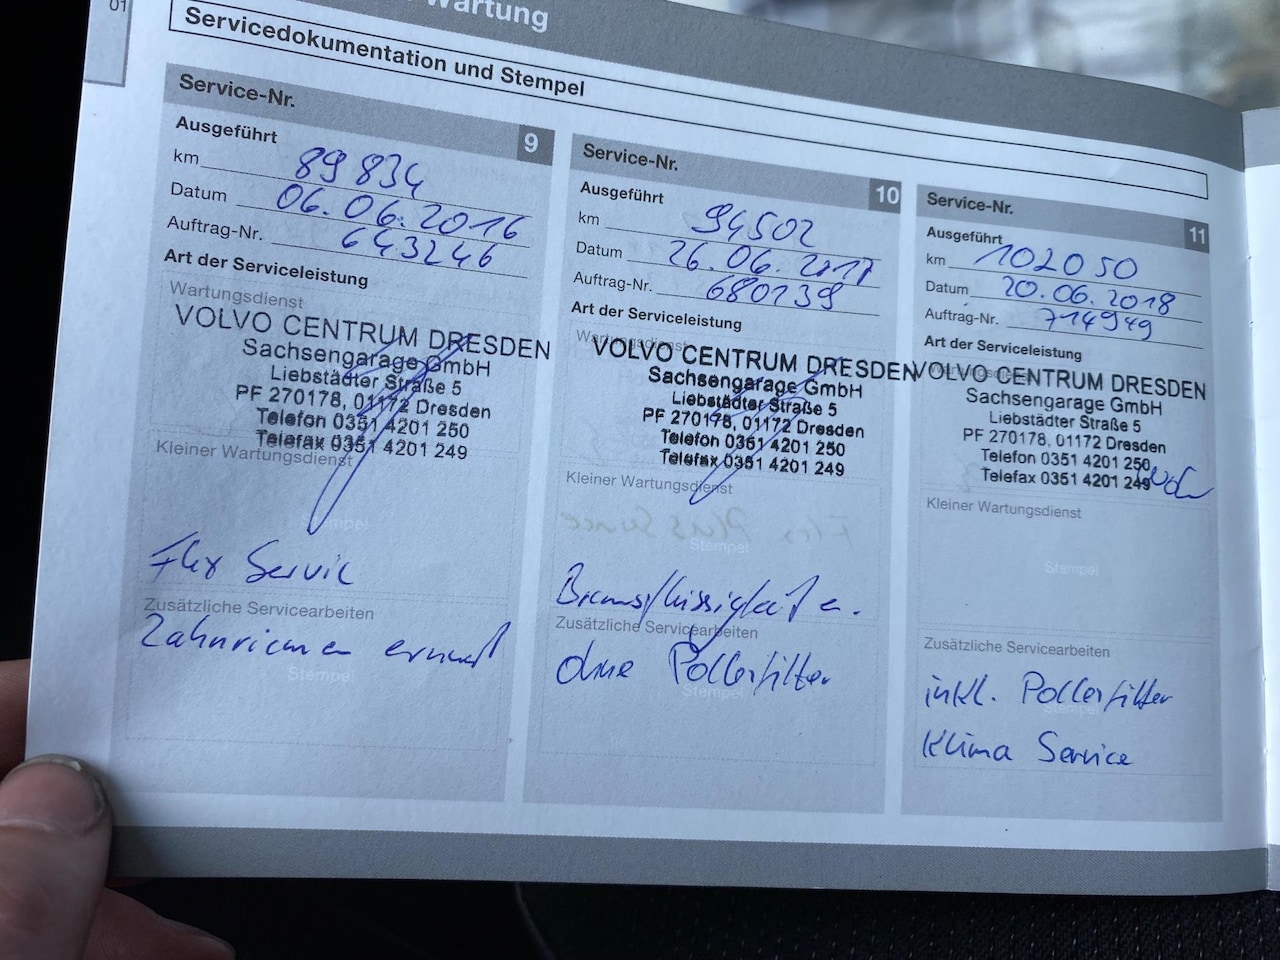 01
Wartung
Servicedokumentation und Stempel
Service-Nr. 9
Ausgeführt
km 89 834
Datum 06.06.2016
Auftrag-Nr. 643246
Art der Serviceleistung
Wartungsdienst
VOLVO CENTRUM DRESDEN
Sachsengarage GmbH
Liebstädter Straße 5
PF 270178, 01172 Dresden
Telefon 0351 4201 250
Telefax 0351 4201 249
Kleiner Wartungsdienst
Stempel
Service
Zusätzliche Servicearbeiten
Zahnriemen erneuert
Stempel
Service-Nr. 10
Ausgeführt
km 94502
Datum 26.06.2017
Auftrag-Nr. 680139
Art der Serviceleistung
Wartungsdienst
VOLVO CENTRUM DRESDEN
Sachsengarage GmbH
Liebstädter Straße 5
PF 270178, 01172 Dresden
Telefon 0351 4201 250
Telefax 0351 4201 249
Kleiner Wartungsdienst
Stempel
Bremsflüssigkeit e.
Zusätzliche Servicearbeiten
ohne Pollenfilter
Stempel
Service-Nr. 11
Ausgeführt
km 102050
Datum 20.06.2018
Auftrag-Nr. 714949
Art der Serviceleistung
VOLVO CENTRUM DRESDEN
Sachsengarage GmbH
Liebstädter Straße 5
PF 270178, 01172 Dresden
Telefon 0351 4201 250
Telefax 0351 4201 249
Kleiner Wartungsdienst
Stempel
Zusätzliche Servicearbeiten
inkl. Pollenfilter
Klima Service